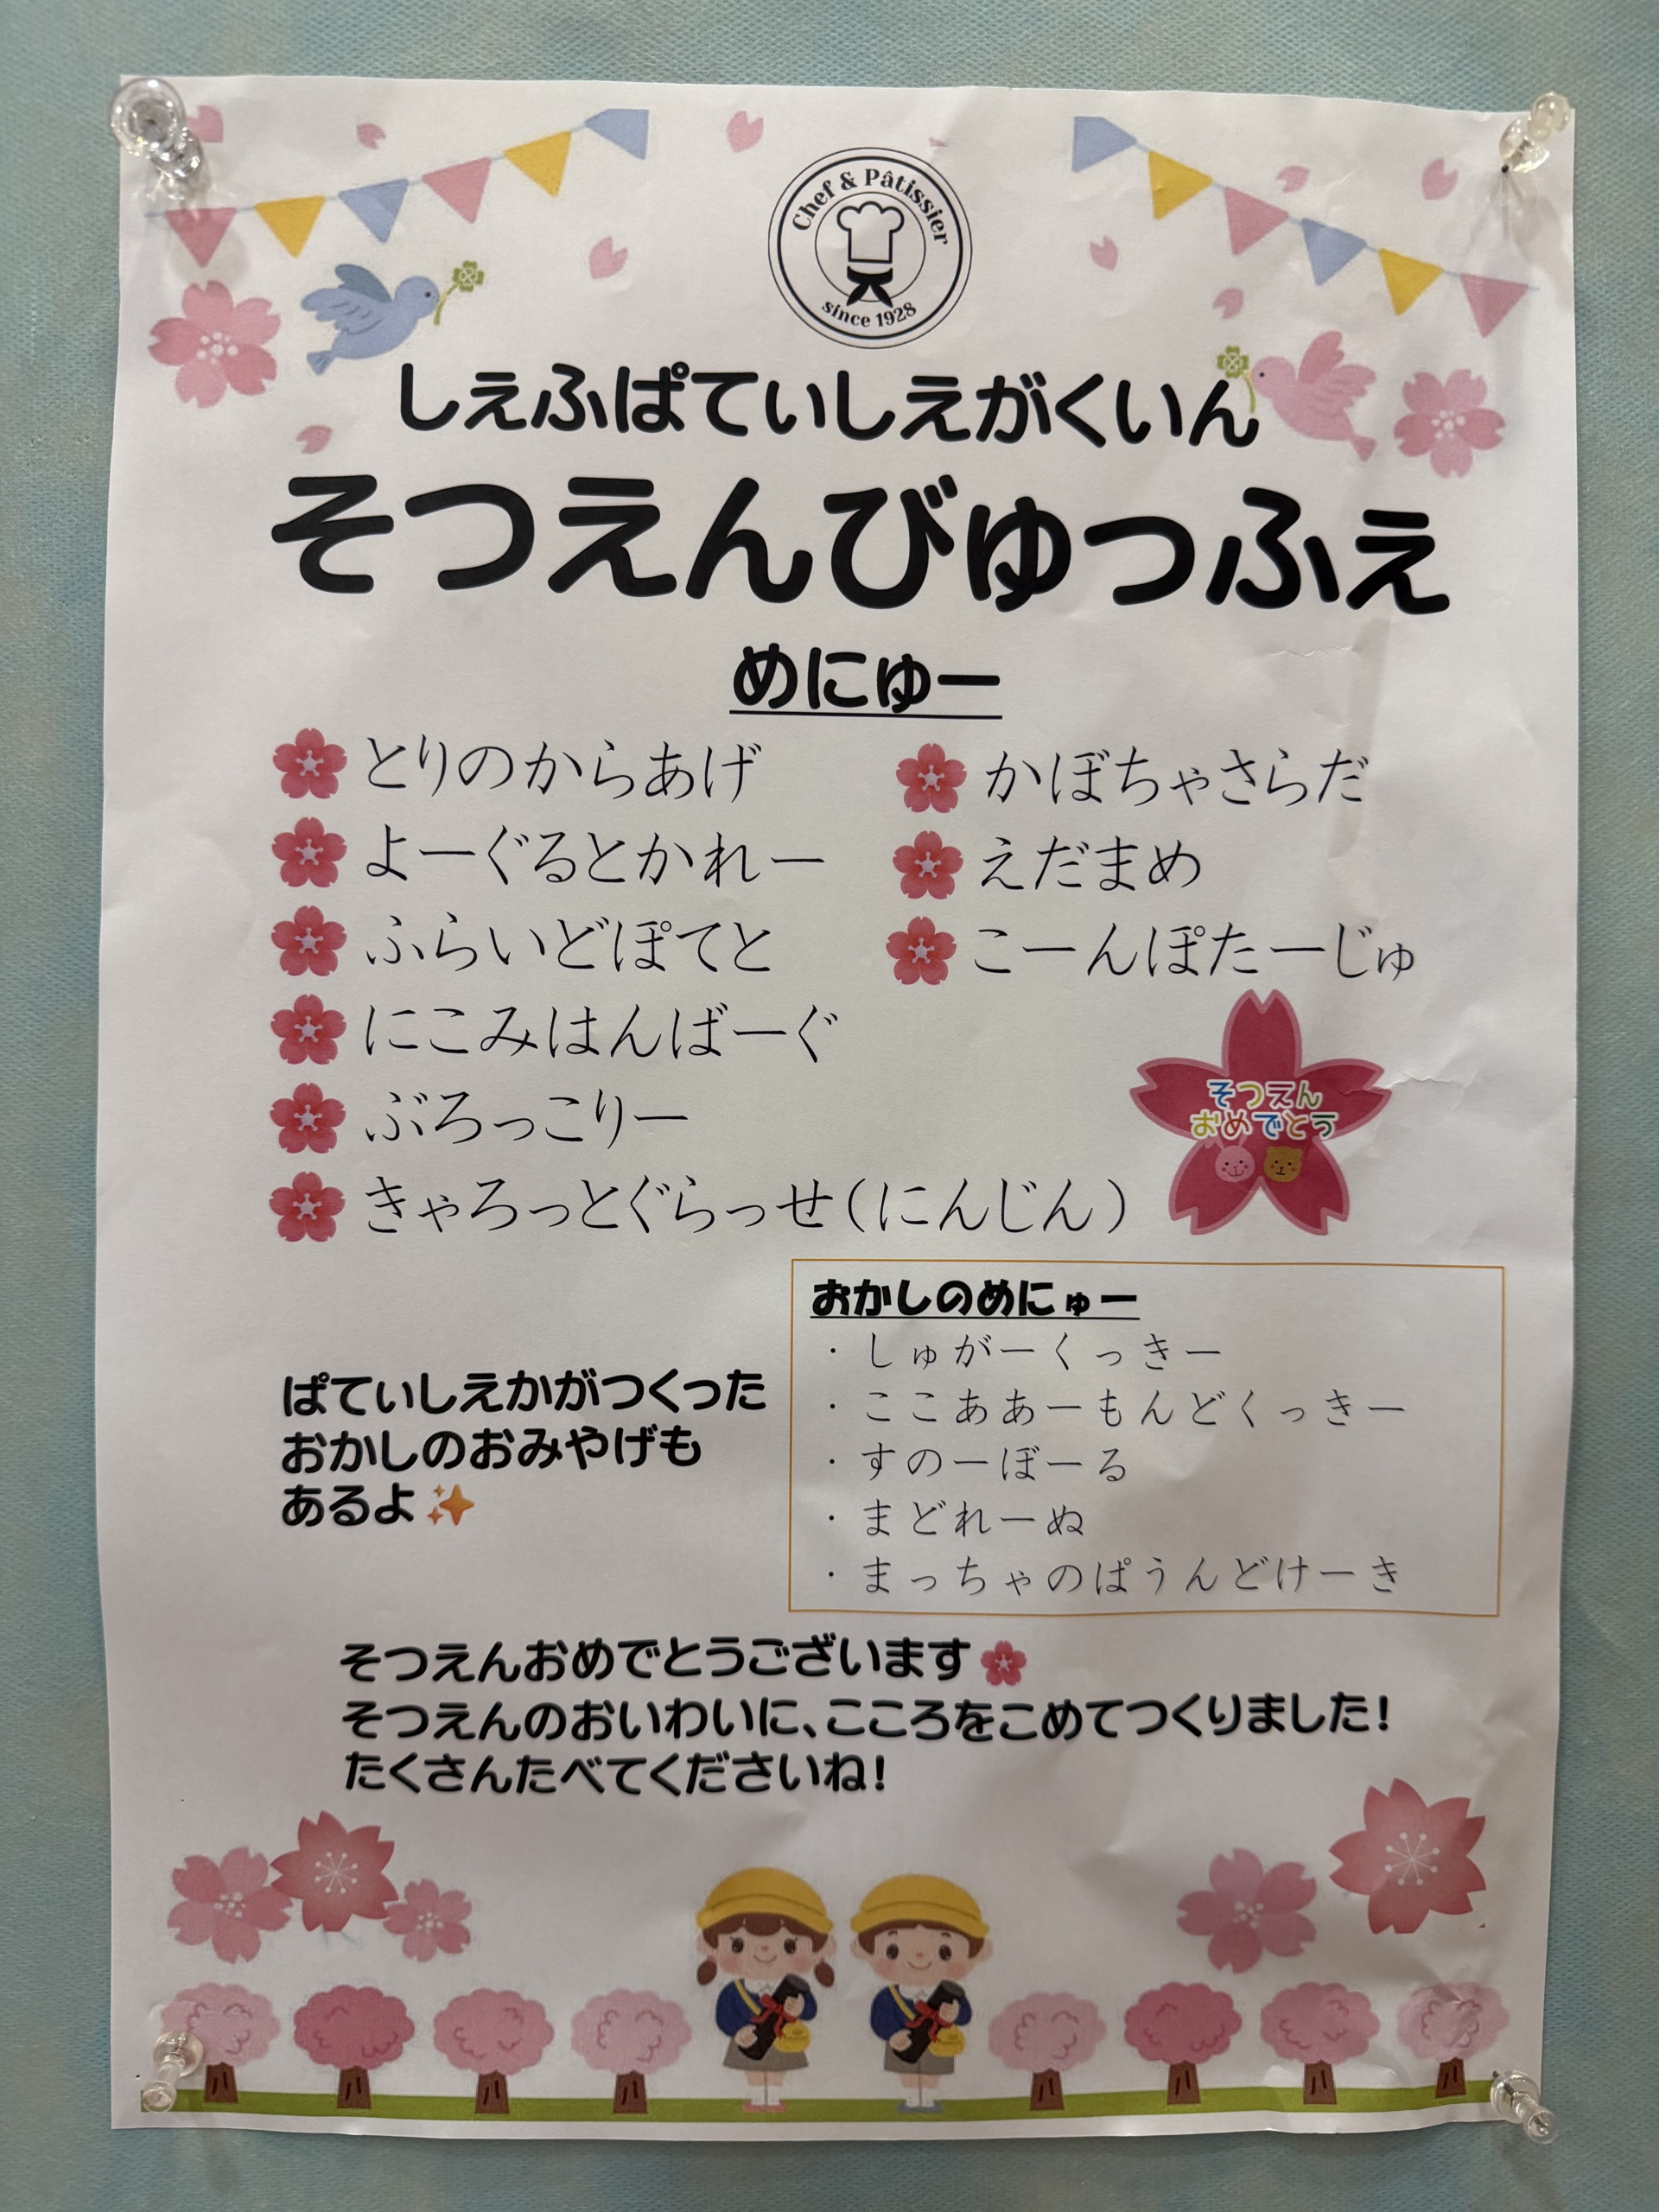 Chef & Pâtissier
since 1928
しえふぱてぃしえがくいん
そつえんびゅっふぇ
めにゅー
とりのからあげ
よーぐるとかれー
ふらいどぽてと
にこみはんばーぐ
ぶろっこりー
きゃろっとぐらっせ(にんじん)
かぼちゃさらだ
えだまめ
こーんぽたーじゅ
そつえん
おめでとう
ぱてぃしえかがつくった
おかしのおみやげも
あるよ✨
おかしのめにゅー
・しゅがーくっきー
・ここああーもんどくっきー
・すのーぼーる
・まどれーぬ
・まっちゃのぱうんどけーき
そつえんおめでとうございます🌸
そつえんのおいわいに、こころをこめてつくりました!
たくさんたべてくださいね!